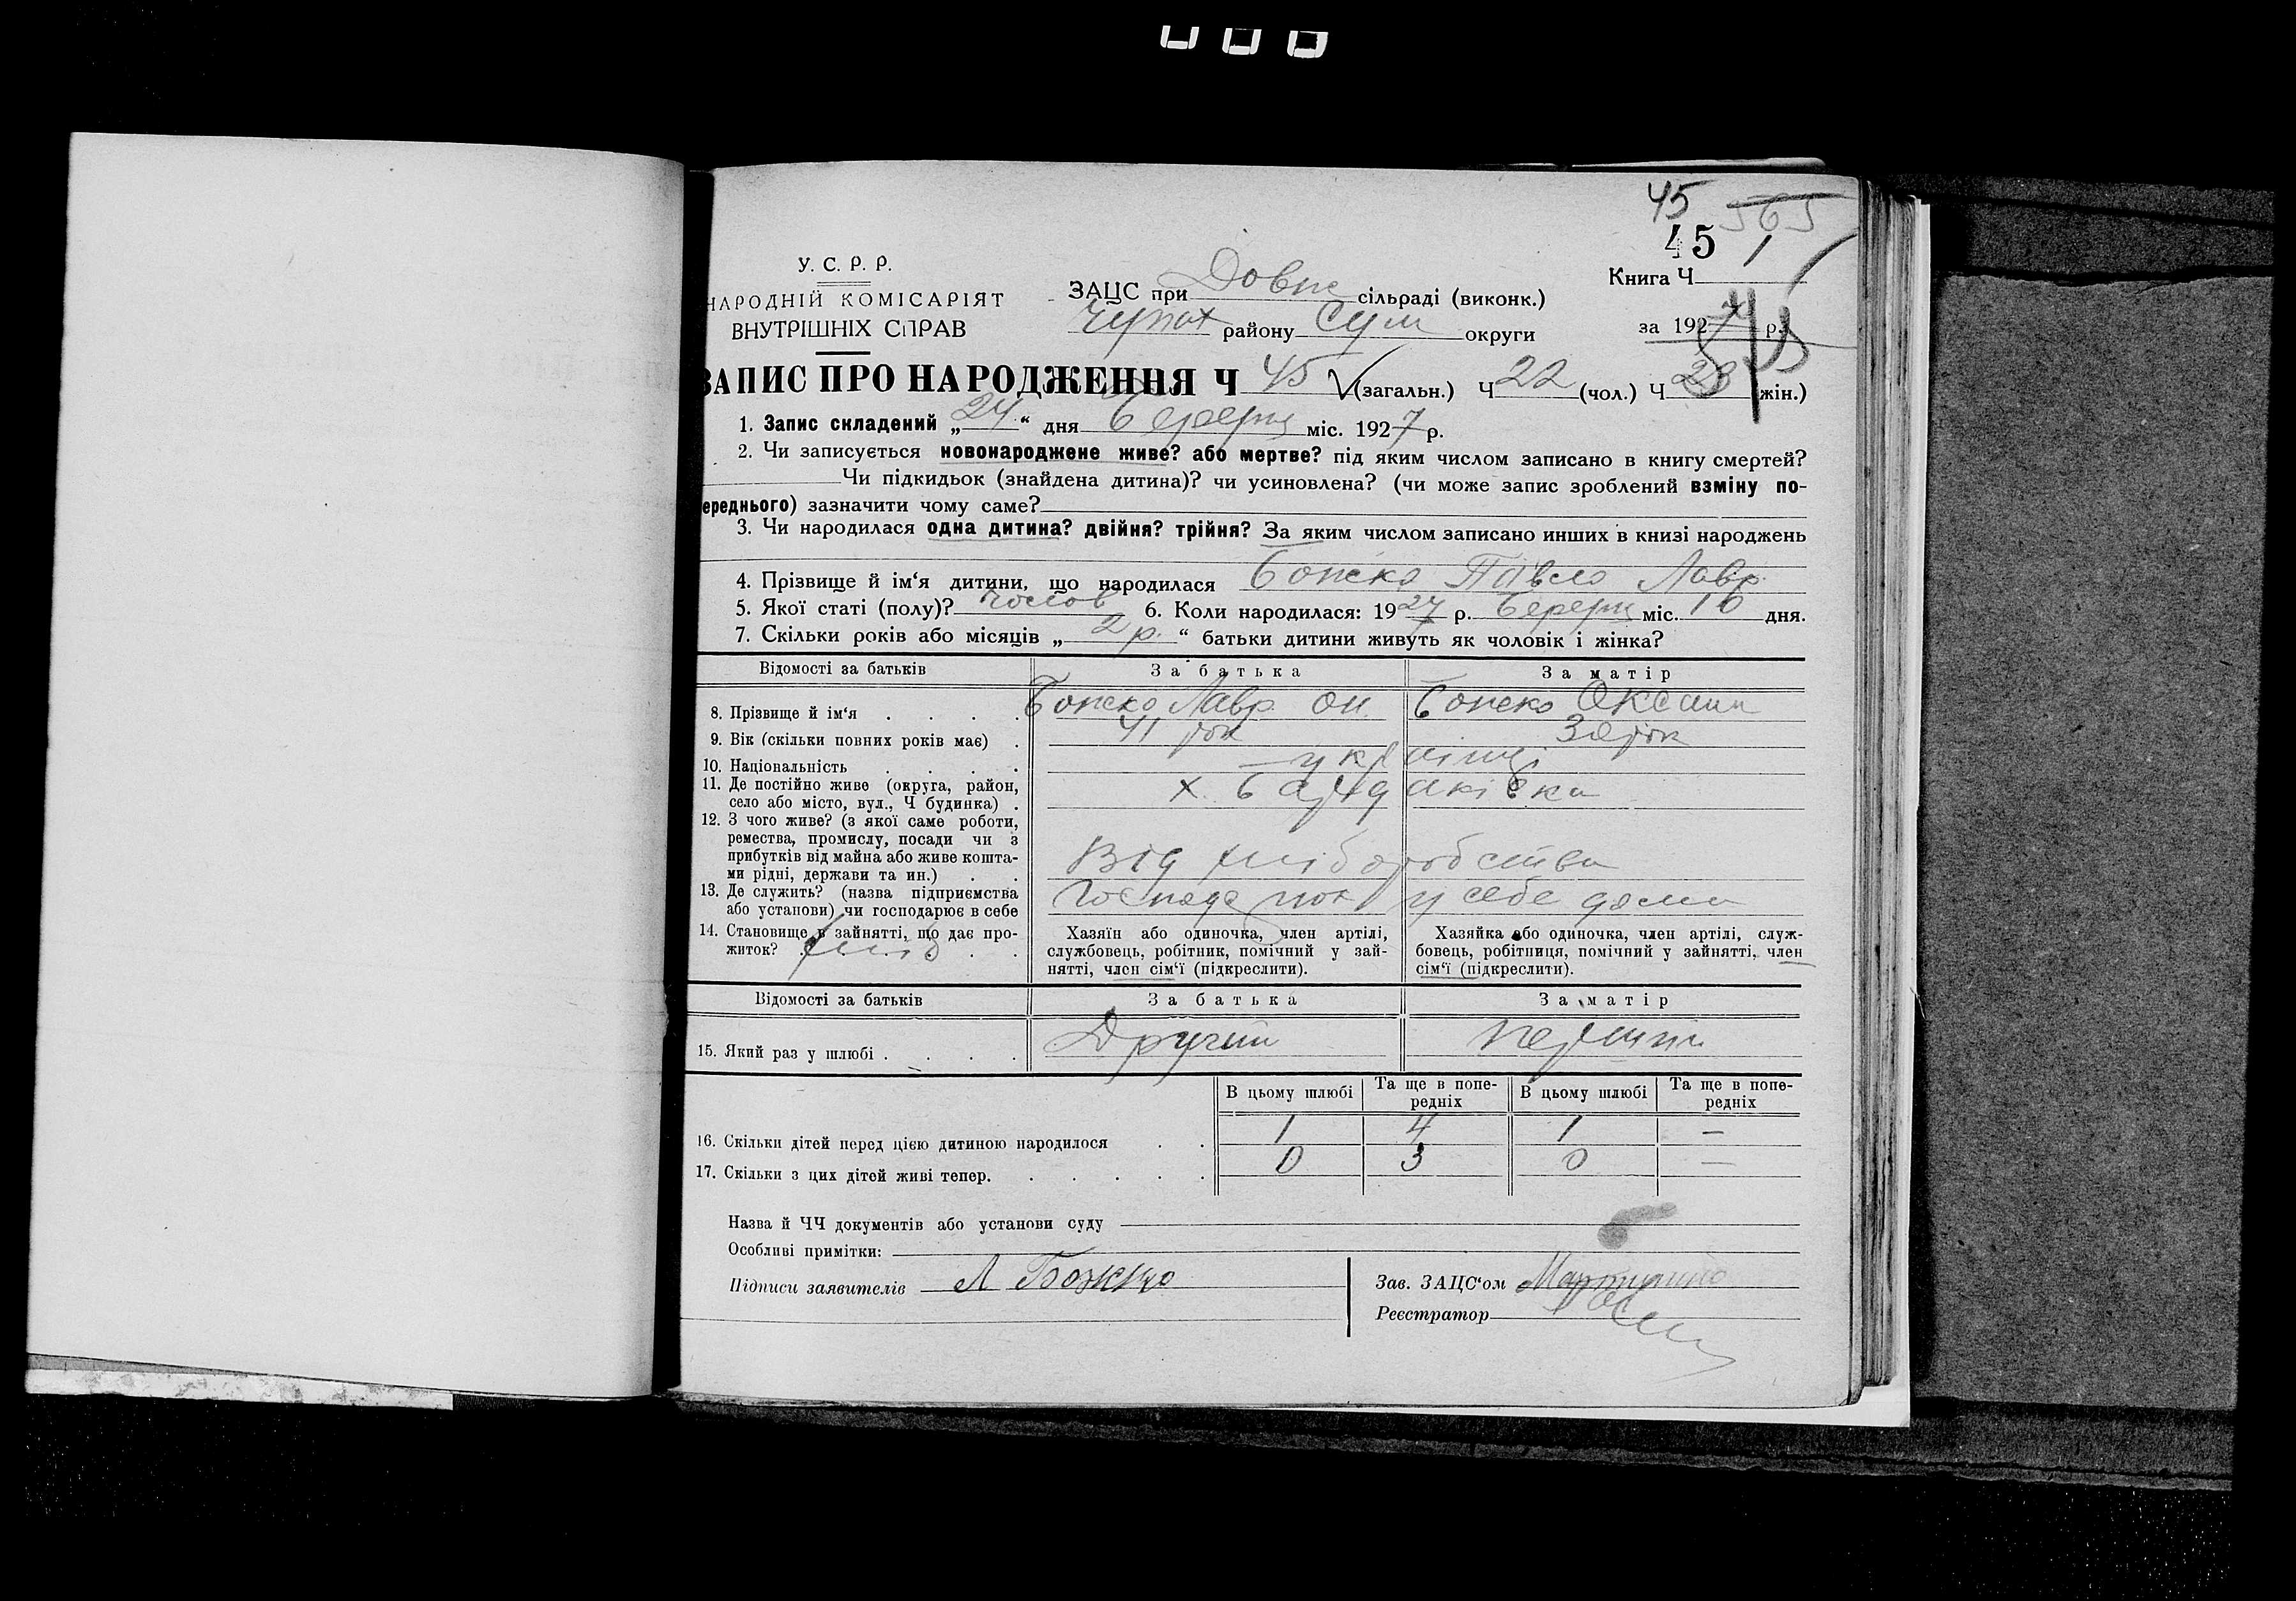 45 565
45
У. С. Р. Р.
НАРОДНІЙ КОМІСАРІЯТ
ВНУТРІШНІХ СПРАВ
ЗАЦС при Довж сільраді (виконк.)
Чупах району Сум округи
Книга Ч 1
за 1927 р.
ЗАПИС ПРО НАРОДЖЕННЯ Ч 45 (загальн.) Ч 22 (чол.) Ч (жін.)
1. Запис складений „24“ дня березня міс. 1927 р.
2. Чи записується новонароджене живе? або мертве? під яким числом записано в книгу смертей?
Чи підкидьок (знайдена дитина)? чи усиновлена? (чи може запис зроблений взміну по-
ереднього) зазначити чому саме?
3. Чи народилася одна дитина? двійня? трійня? За яким числом записано инших в книзі народжень
4. Прізвище й ім‘я дитини, що народилася Божко Павло Лавр.
5. Якої статі (полу)? чолов 6. Коли народилася: 1927 р. березня міс. 10 дня.
7. Скільки років або місяців „2 р.“ батьки дитини живуть як чоловік і жінка?
Відомості за батьків За батька За матір
8. Прізвище й ім‘я Божко Лавр Он. Божко Оксана
9. Вік (скільки повних років має) 41 рок рок
10. Національність українці
11. Де постійно живе (округа, район,
село або місто, вул., Ч будинка) х. Байдаківка
12. З чого живе? (з якої саме роботи,
ремества, промислу, посади чи з
прибутків від майна або живе кошта-
ми рідні, держави та ин.) Від хліборобства
13. Де служить? (назва підприємства
або установи) чи господарює в себе у себе дома
14. Становище в зайнятті, що дає про-
житок? хліб
Хазяїн або одиночка, член артілі,
службовець, робітник, помічний у зай-
нятті, член сім‘ї (підкреслити).
Хазяйка або одиночка, член артілі, служ-
бовець, робітниця, помічний у зайнятті, член
сім‘ї (підкреслити).
Відомості за батьків За батька За матір
15. Який раз у шлюбі Другий перший
В цьому шлюбі Та ще в попе-
редніх В цьому шлюбі Та ще в попе-
редніх
16. Скільки дітей перед цією дитиною народилося 1 4 1 —
17. Скільки з цих дітей живі тепер. 0 3 0 —
Назва й ЧЧ документів або установи суду
Особливі примітки:
Підписи заявителів Л Божко
Зав. ЗАЦС‘ом
Реєстратор